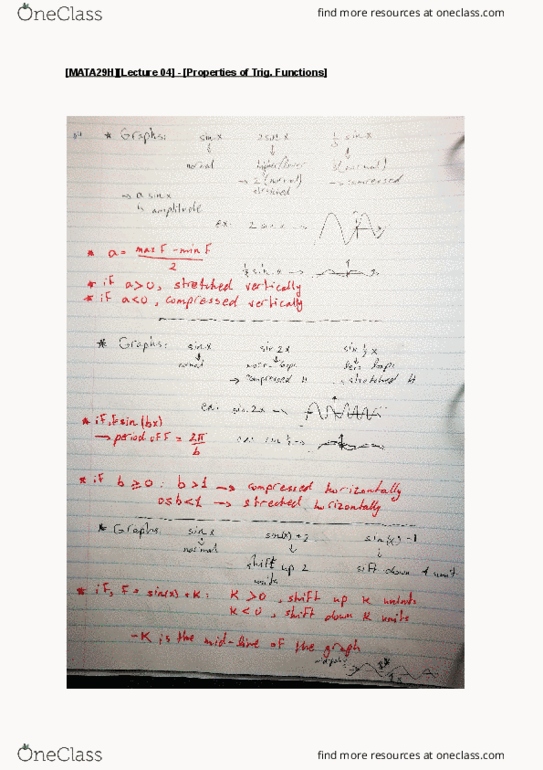 OneClass
find more resources at oneclass.com
[MATA29H][Lecture 04] - [Properties of Trig. Functions]
* Graphs: sin x 2 sin x ½ sin x
normal
→ 2 (normal) → compressed
stretched
→ a sin x
↳ amplitude
ex: 2 sin x →
* a = max F - min F / 2
½ sin x →
* if a>0, stretched vertically
* if a<0, compressed vertically
* Graphs: sin x sin 2x sin ½ x
normal more loops less loops
→ compressed H → stretched H
ex: sin 2x →
* if, F sin (bx)
→ period of F = 2π / b
* if b ≥ 0 : b > 1 → compressed horizontally
0≤b<1 → streched horizontally
* Graphs: sin x sin(x) + 2 sin(x) - 1
normal
shift up 2 sift down 1 unit
units
* if, F = sin(x) + K: K > 0, shift up K units
K < 0, shift down K units
- K is the mid-line of the graph
OneClass
find more resources at oneclass.com